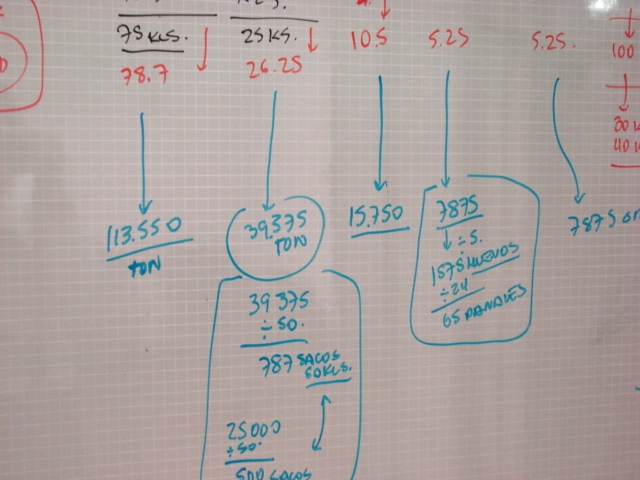 75 KLS.
78.7
25 KS.
26.25
10.5
5.25
5.25.
100
30 K
40 K
113.550
TON
39.375
TON
15.750
7875
÷ 5.
1575 HUEVOS
÷ 24
65 PANALES
7875 Gr
39 375
÷ 50.
787 SACOS
50 KLS.
25000
÷ 50.
500 SACOS